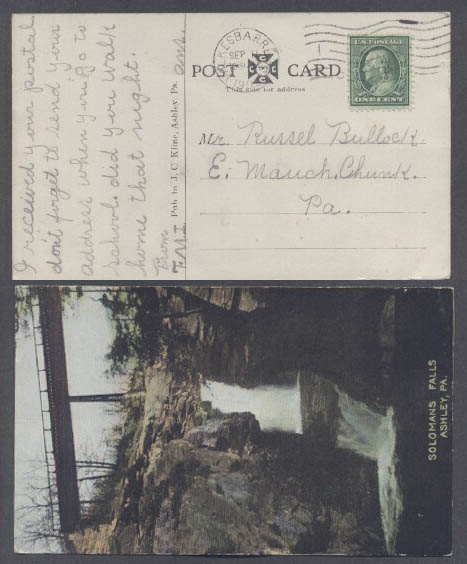 I received your postal
don't forget to send your
address when you go to
school. did you walk
home that night.
From
F.M.I.
ans.
Pub. by J. C. Kline, Ashley, Pa.
WILKESBARRE
SEP
POST CARD
This side for address
U.S. POSTAGE
ONE CENT
Mr. Russel Bullock
E. Mauch Chunk.
Pa.
SOLOMANS FALLS
ASHLEY, PA.